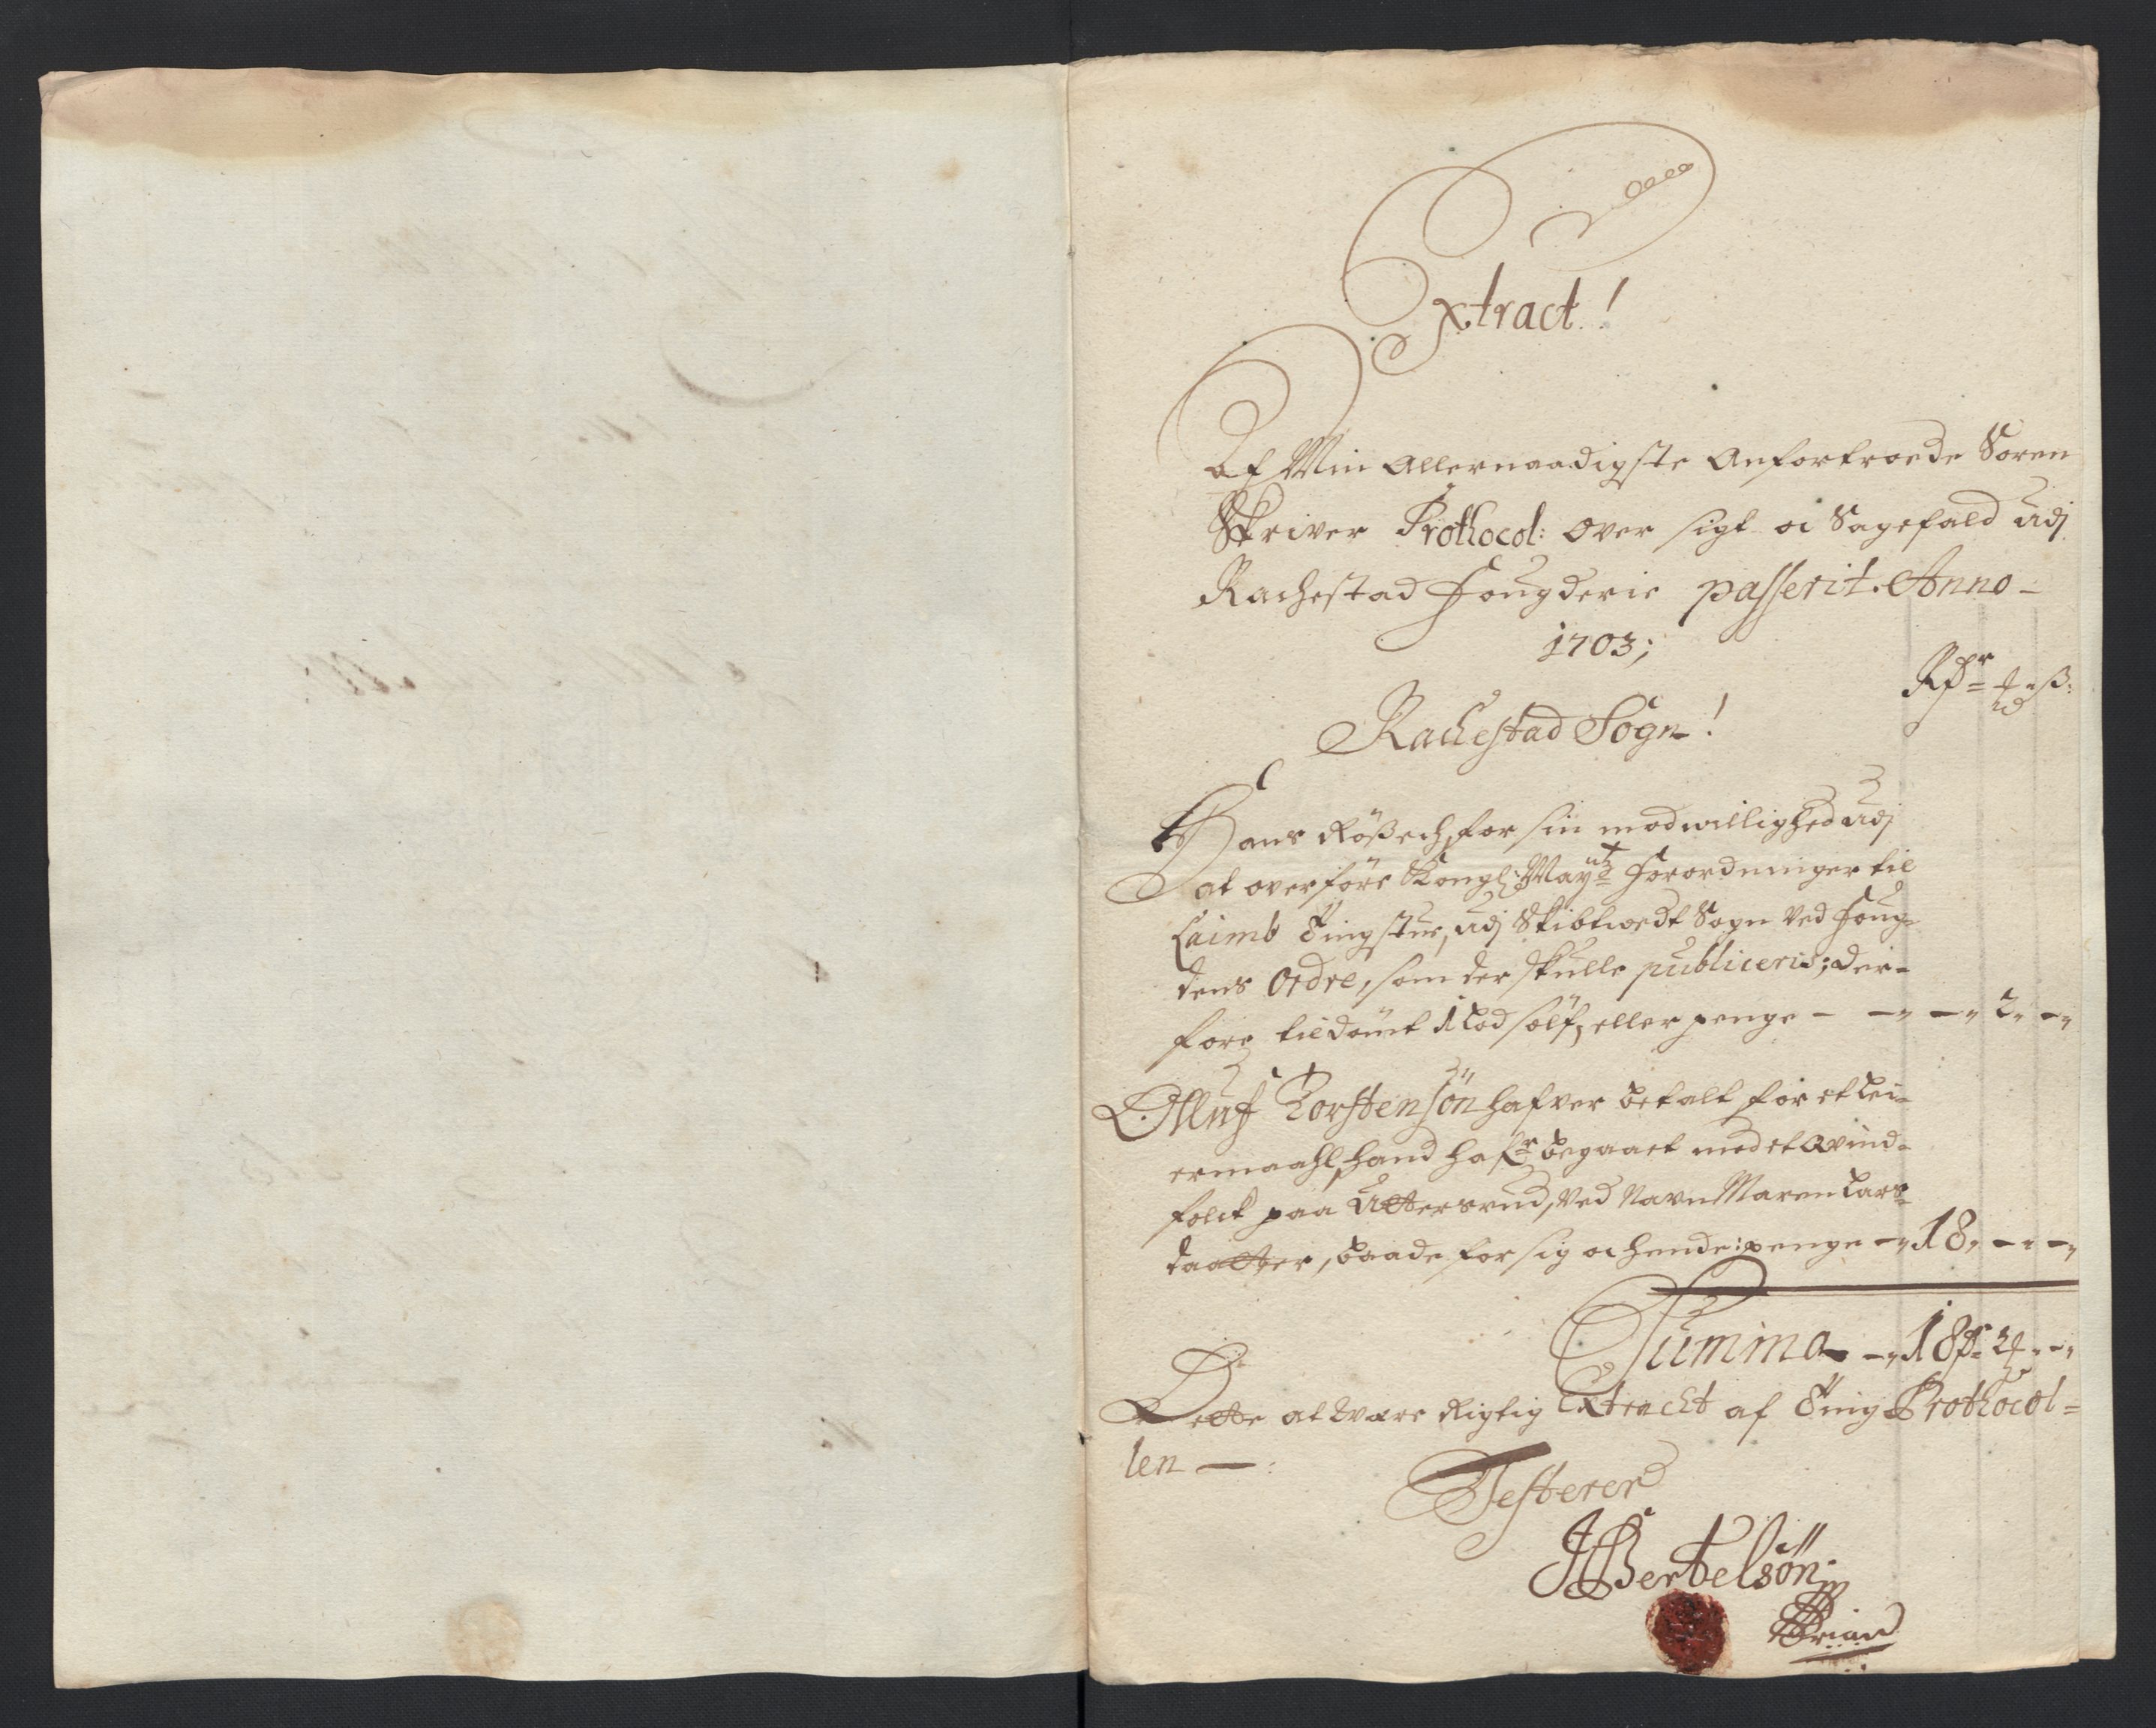 Extract!
Af Min Allernaadigste Anfortroede Soren
Skriver Prothocol: over sigt oc Sagefald udj
Rachestad Fougderie passerit. Anno -
1703;
Rachestad Sogn!
Hans Rößech, for sin modwillighed udj
at overføre Kongl: May: Forordninger til
Laimb Tingstue, udj Skibtwedt Sogn Ved Foug-
dens Ordre, som der skulle publiceris; der-
fore tildömt 1 Lod sölf, eller penge - -" -" 2" -"
Olluf Torstensön hafver betalt for et Lei-
ermaahl, hand hafr begaaet med et Qvind-
folck paa Uttersrud, Ved Navn Maren Lars-
daatter, baade for sig oc hende: penge -" 18" -" -"
Summa -" 18 2 " -"
Dette at Være Rigtig Extracht af Ting Prothocol=
len —:
Testerer
JBertelsön